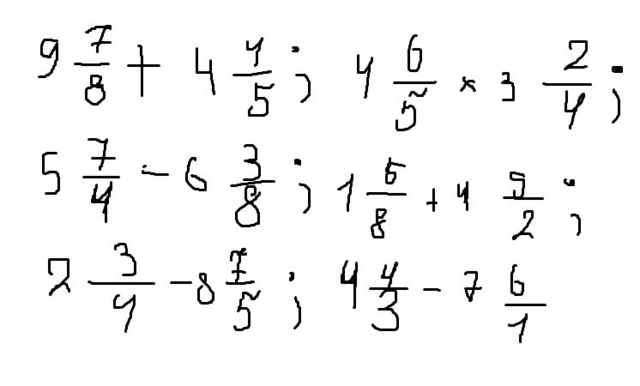 9 7/8 + 4 4/5 ; 4 6/5 × 3 2/4 ;
5 7/4 - 6 3/8 ; 1 6/8 + 4 9/2 ;
2 3/4 - 8 7/5 ; 4 4/3 - 7 6/1